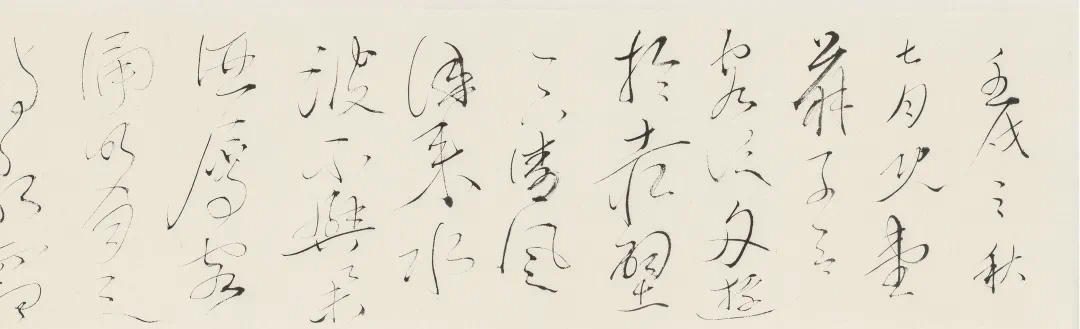 壬戌之秋
七月既望
蘇子與
客泛舟遊
於赤壁
之下清風
徐來水
波不興舉
酒屬客
誦明月之